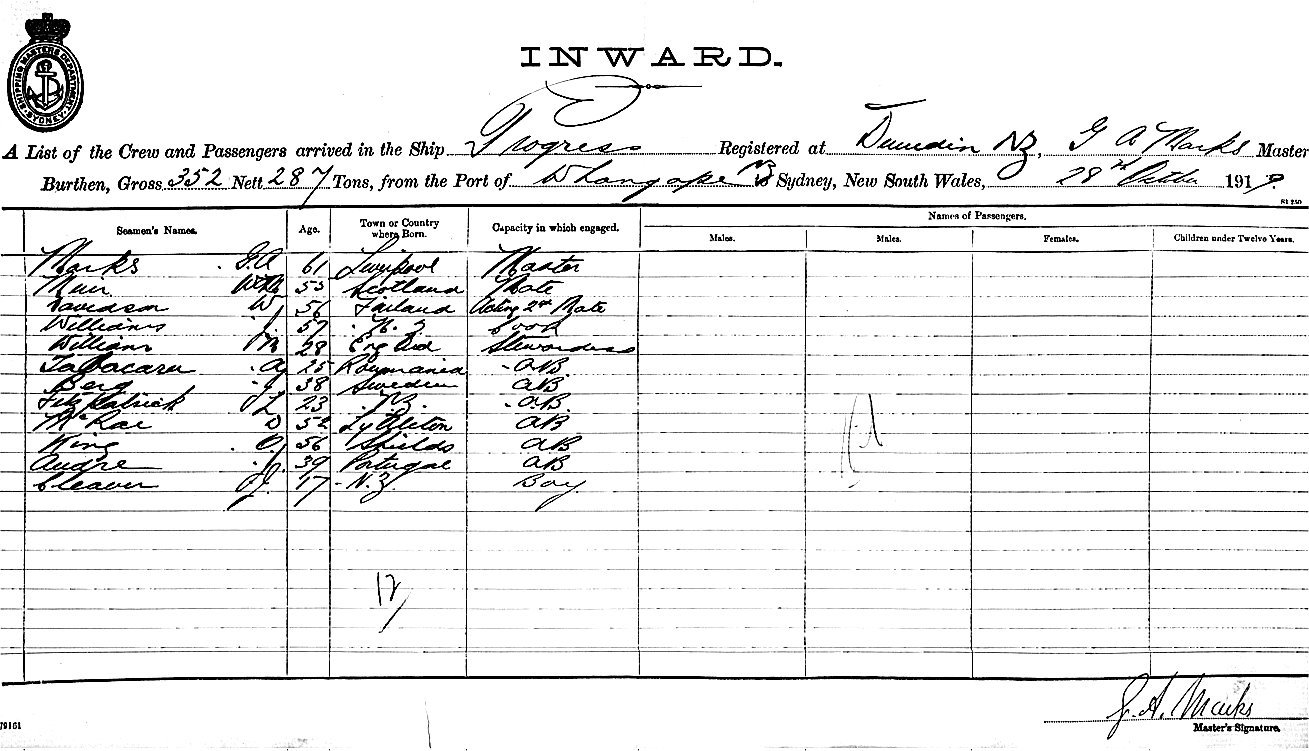 SHIPPING MASTERS DEPARTMENT SYDNEY
INWARD.
A List of the Crew and Passengers arrived in the Ship Progress Registered at Dunedin NZ, G A Marks Master
Burthen, Gross 352 Nett 287 Tons, from the Port of Whangape NZ to Sydney, New South Wales, 28th October 191
Seamen's Names. Age. Town or Country where Born. Capacity in which engaged. Names of Passengers.
Males. Males. Females. Children under Twelve Years.
Marks G.A 61 Liverpool Master
Muir 55 Scotland Mate
Davidson W 56 Acting 2nd Mate
Williams J. 57 N.Z Cook
Williams M 28 England Stewardess
Tabacaru A 25 Roumania AB
Berg J 38 Sweden AB
Fitzpatrick J L 23 NZ. AB
McRae D 52 Lyttleton AB
King 56 Shields AB
Andre J. 39 Portugal AB
Cleaver J. 17 N.Z. Boy
12
G. A. Marks
Master's Signature.
79161